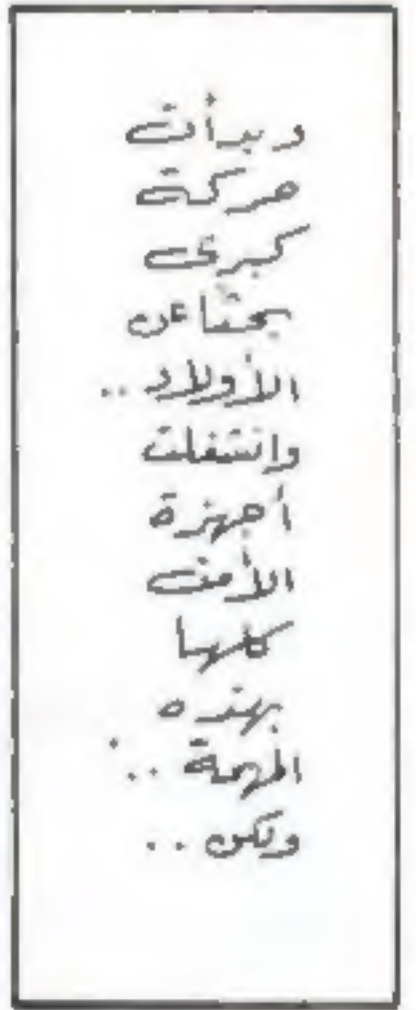 وبدأت
حركة
كبرى
بحثًا عن
الأولاد ..
وانشغلت
أجهزة
الأمن
كلها
بهذه
المهمة ..
ولكن ..